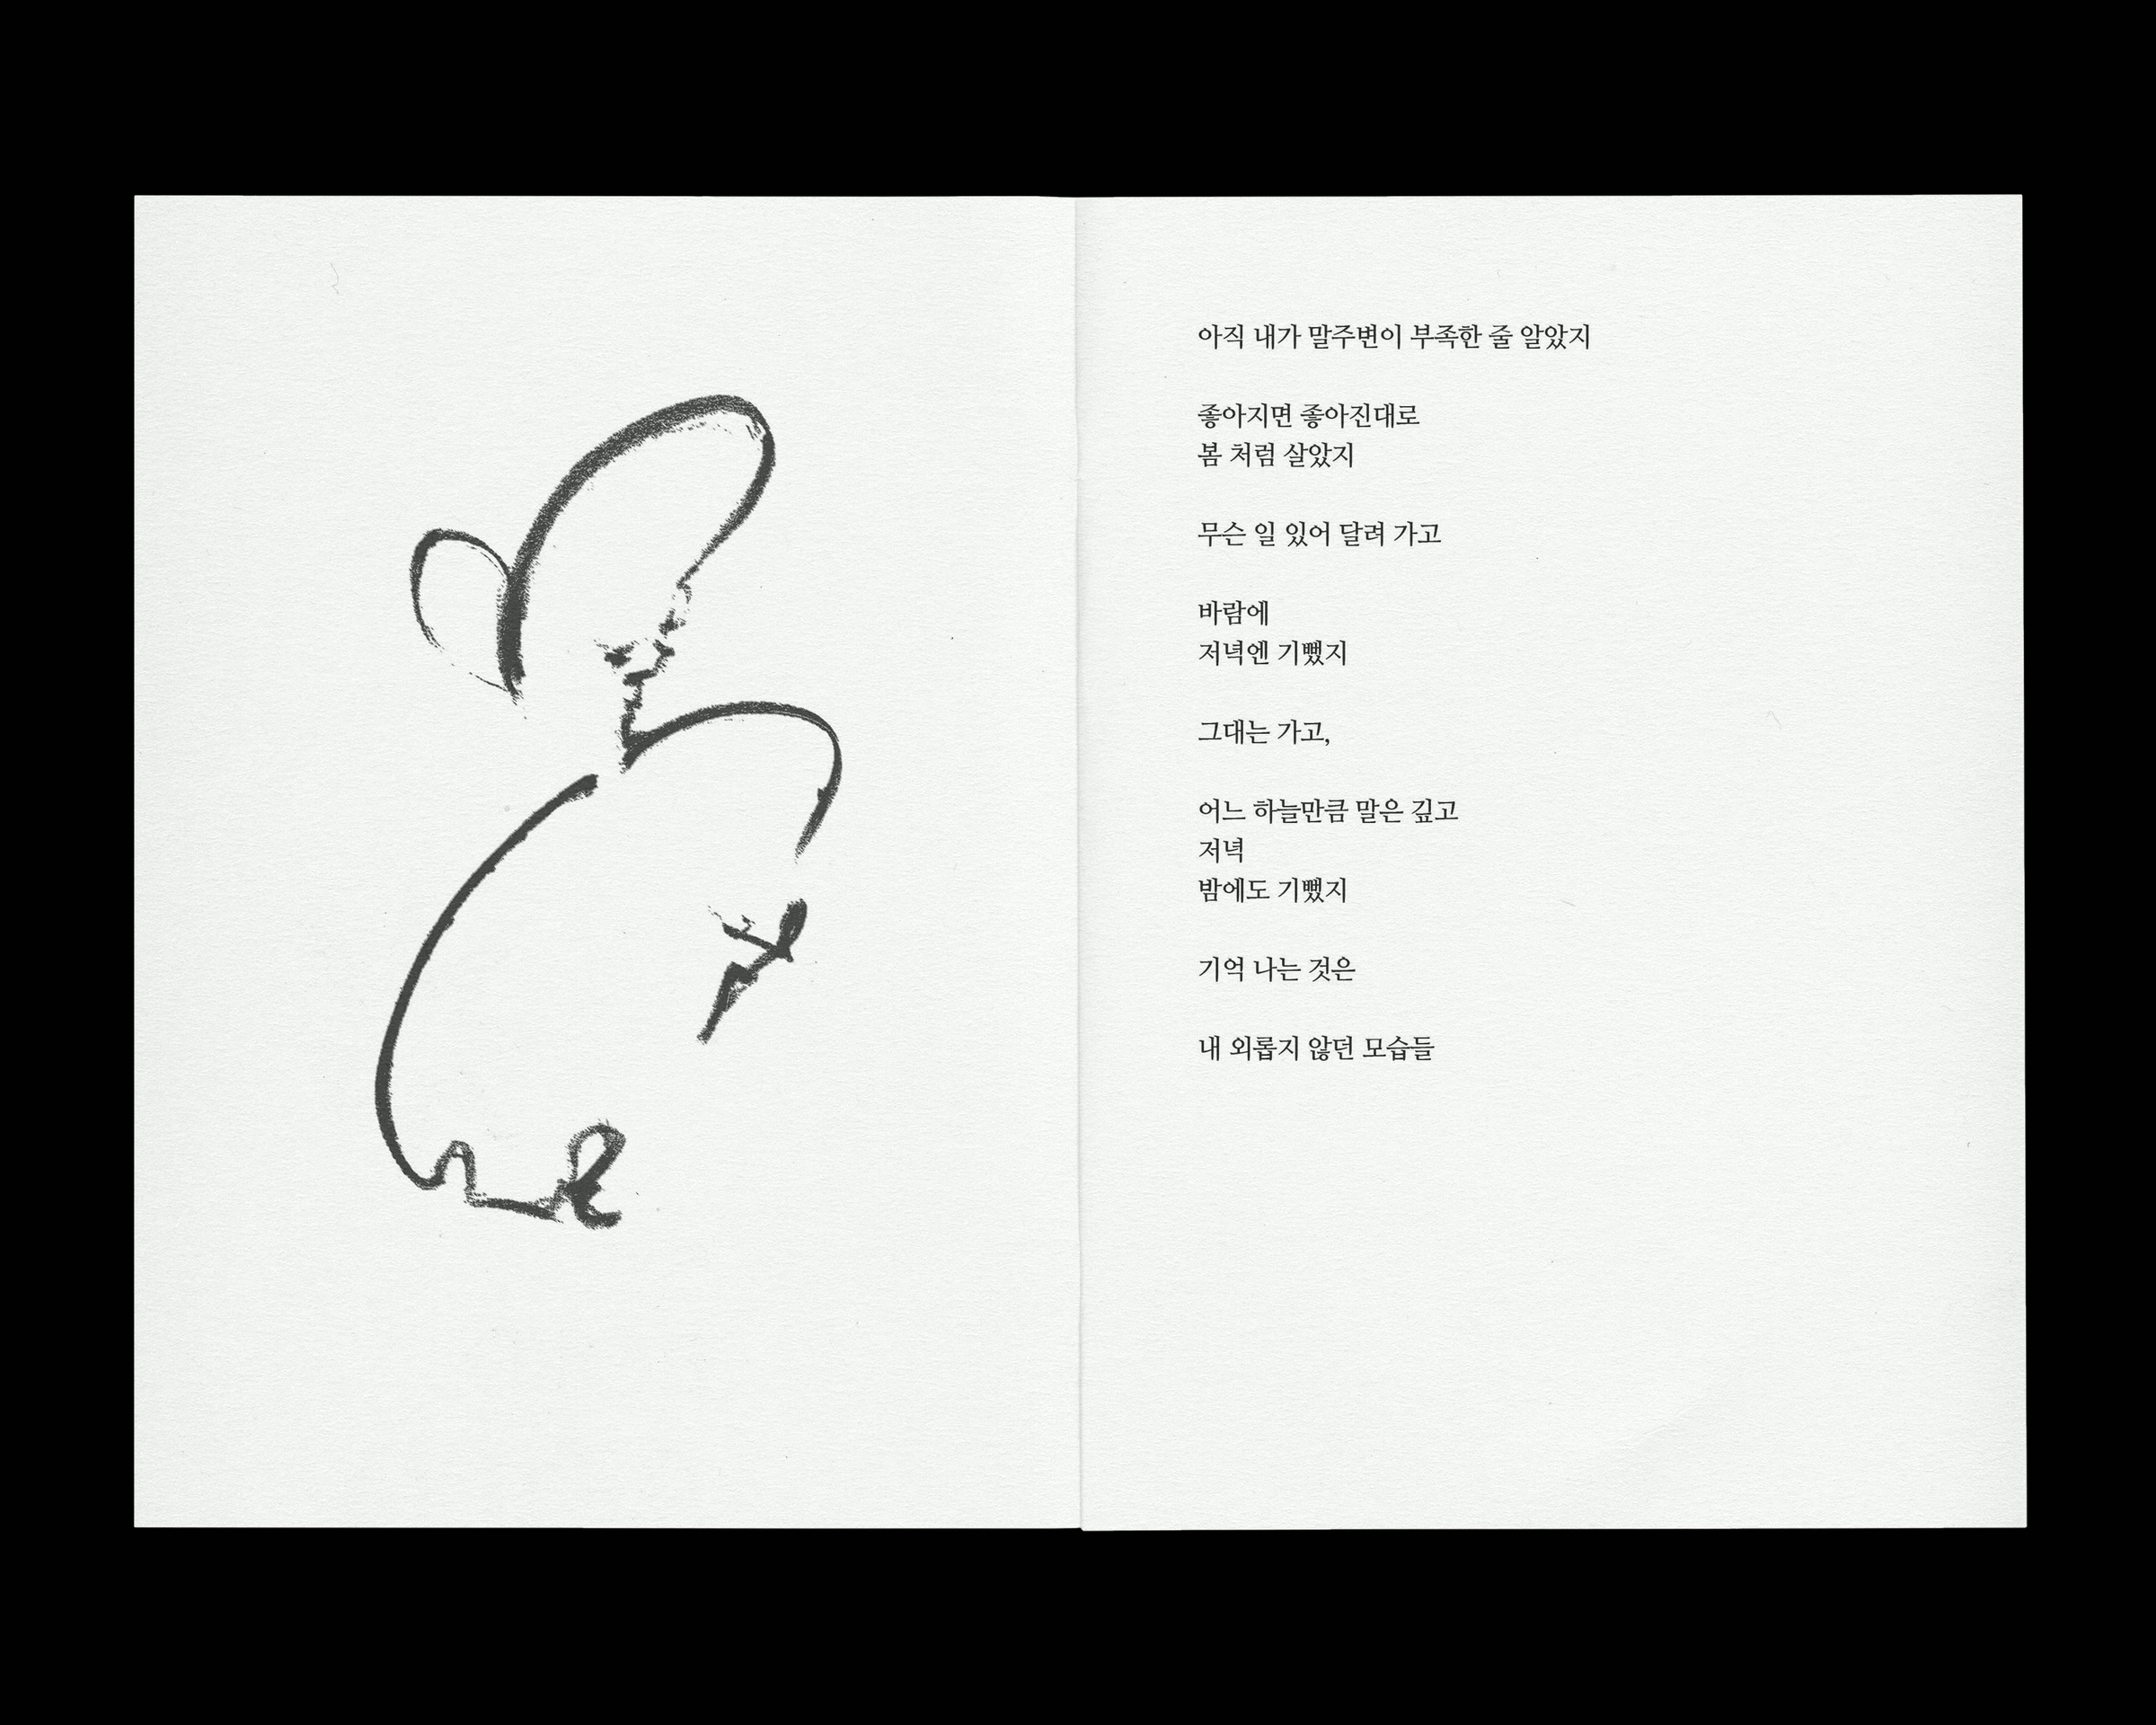 아직 내가 말주변이 부족한 줄 알았지
좋아지면 좋아진대로
봄 처럼 살았지
무슨 일 있어 달려 가고
바람에
저녁엔 기뻤지
그대는 가고,
어느 하늘만큼 말은 깊고
저녁
밤에도 기뻤지
기억 나는 것은
내 외롭지 않던 모습들